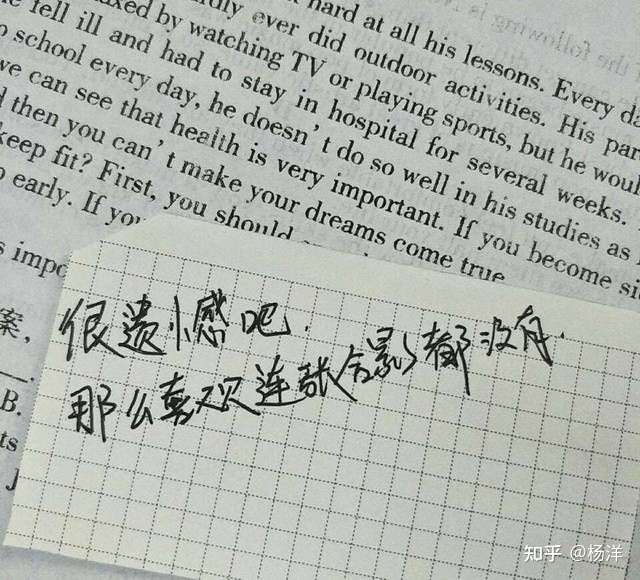 hard at all his lessons. Every da
ever did outdoor activities. His par
by watching TV or playing sports, but he woul
fell ill and had to stay in hospital for several weeks.
school every day, he doesn't do so well in his studies as
we can see that health is very important. If you become si
then you can't make your dreams come true
keep fit? First, you should
early. If you
s impo
案,
很遗憾吧.
那么喜欢连张合影都没有.
B.
ts
J
知乎 @杨洋